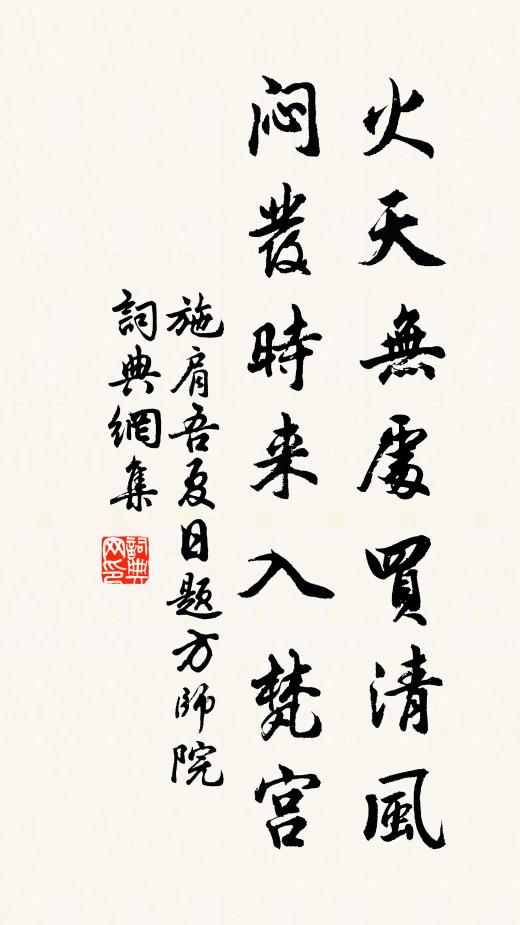 火天無處買清風
悶發時来入梵宮
施肩吾夏日題方師院
詞典網集
詞典网印